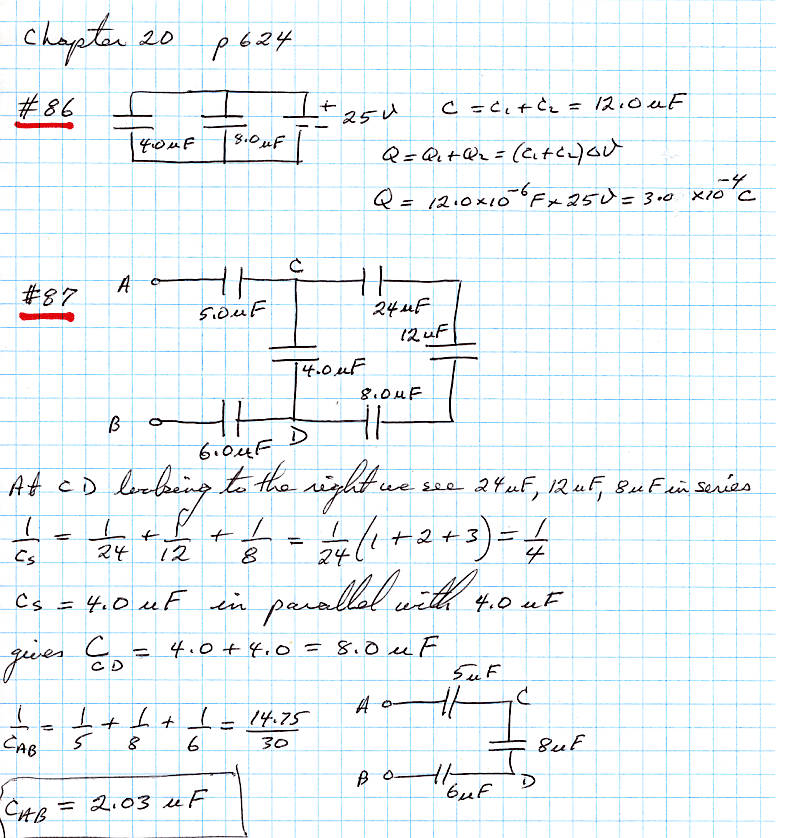 Chapter 20 p 624
#86
4.0uF
8.0uF
+ 25V
C = C1 + C2 = 12.0 uF
Q = Q1 + Q2 = (C1+C2)ΔV
Q = 12.0 x 10^-6 F x 25V = 3.0 x10^-4 C
#87
A
5.0uF
C
24uF
12uF
4.0uF
8.0uF
B
6.0uF
D
At CD looking to the right we see 24uF, 12uF, 8uF in series
1/Cs = 1/24 + 1/12 + 1/8 = 1/24 (1 + 2 + 3) = 1/4
Cs = 4.0 uF in parallel with 4.0 uF
gives C_CD = 4.0 + 4.0 = 8.0 uF
1/C_AB = 1/5 + 1/8 + 1/6 = 14.75/30
C_AB = 2.03 uF
5uF
A
C
8uF
B
6uF
D